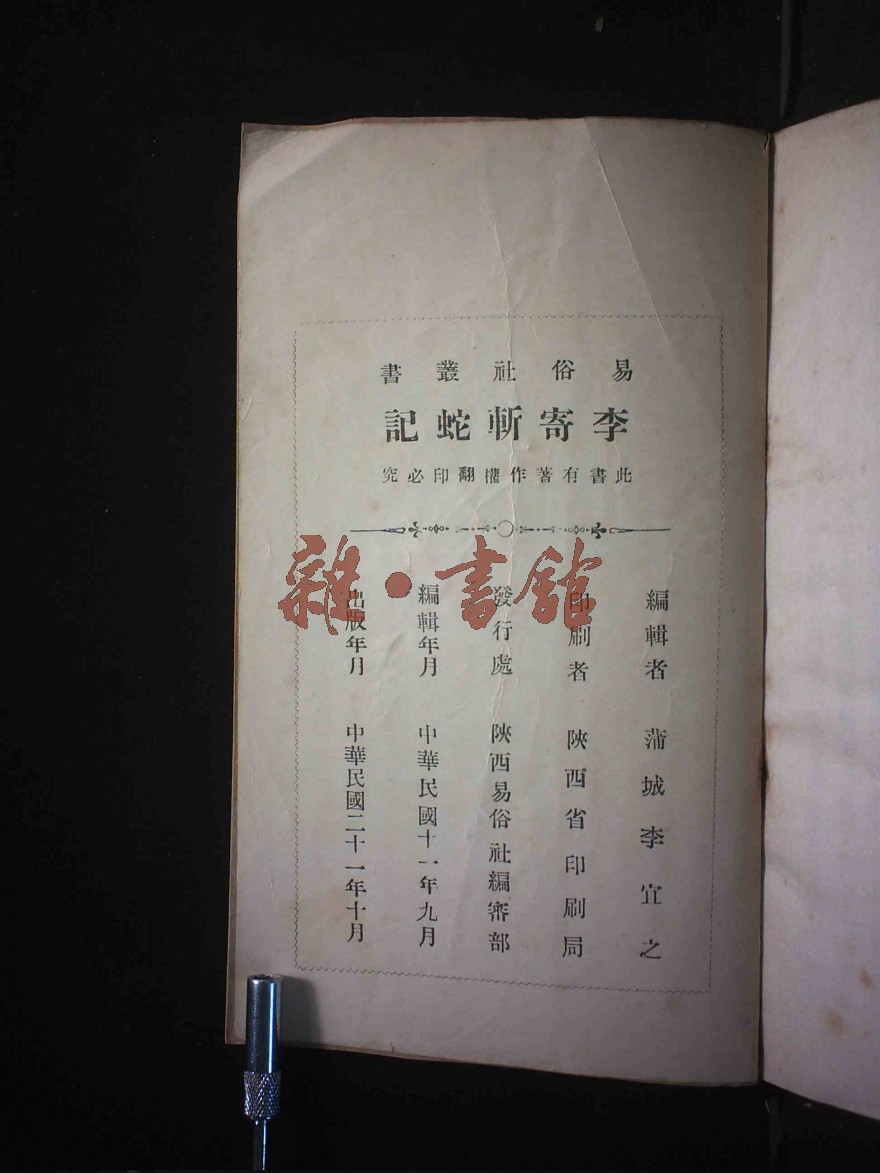 易俗社叢書
李寄斬蛇記
此書有著作權翻印必究
編輯者 蒲城李宜之
印刷者 陝西省印刷局
發行處 陝西易俗社編審部
編輯年月 中華民國十一年九月
出版年月 中華民國二十一年十月
雜·書館